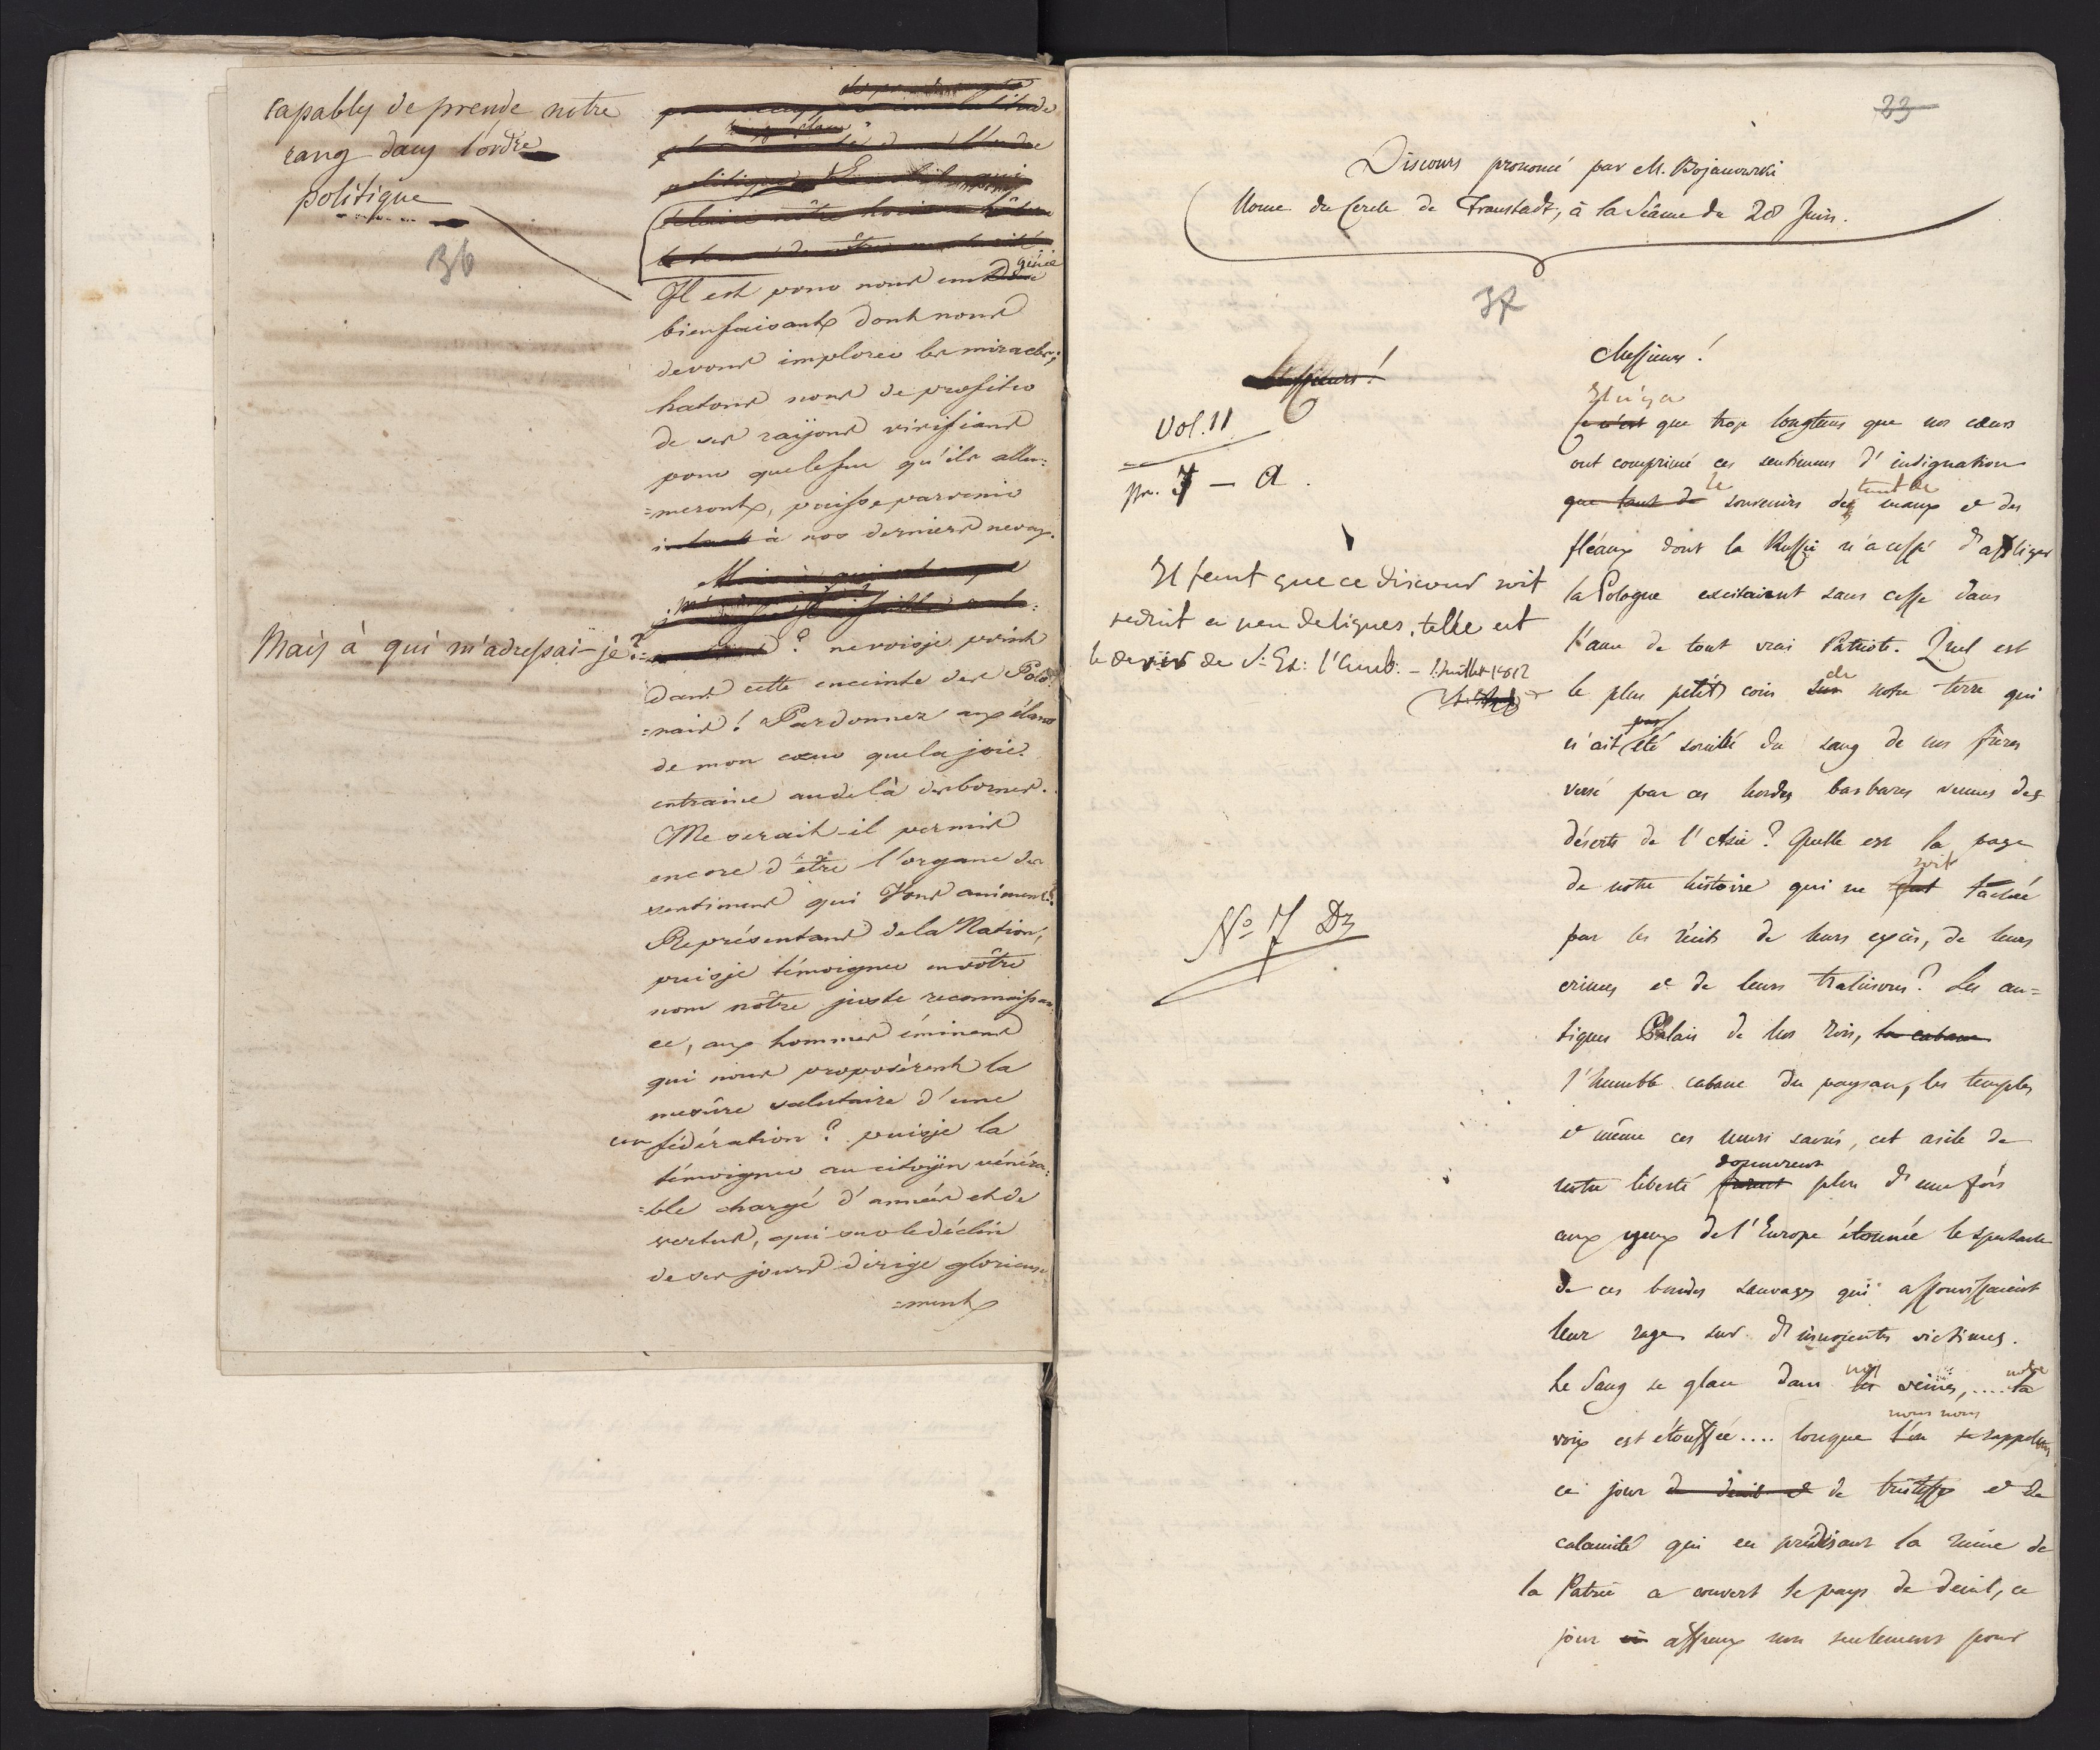 capables de prendre notre
rang dans l'ordre
politique
36
Mais à qui m'adressai-je?
génie
Il est pour nous un
bienfaisant dont nous
devons implorer les miracles;
hatons nous de profiter
de ses raÿons vivifians
pour que le feu qu'ils allu-
=meront, puisse parvenir
intact à nos derniers neveux.
? ne vois je point
dans cette enceinte des Polo-
=nais! Pardonnez aux élans
de mon cœur que la joie
entraine au delà des bornes.
Me serait-il permis
encore d'être l'organe des
sentimens qui Vous animent?
Représentans de la Nation,
puisje témoigner en vôtre
nom nôtre juste reconnaissan
ce, aux hommes éminens
qui nous proposèrent la
mesûre salutaire d'une
confédération? puisje la
témoigner au citoÿen vénéra:
=ble chargé d'années et de
vertus, qui sur le déclin
de ses jours dirige glorieuse
=ment
23
Discours prononcé par M. Bojanowski
Nonce du Cercle de Fraustadt, à la Séance du 28 Juin.
37
Messieurs!
Vol. II
pr. 7 - a.
Il faut que ce discours soit
reduit en peu de lignes, telle est
le desir de S: Ex: l'Amb. - 1. Juillet 1812
No 7 Dz
Messieurs!
Il n'y a
Ce n'est que trop longtems que nos cœurs
ont comprimé ces sentimens d'indignation
que tant de le souvenirs des tant de maux et des
fléaux dont la Russie n'a cessé d'affliger
la Pologne excitaient sans cesse dans
l'ame de tout vrai Patriote. Quel est
le plus petit coin sur de notre terre qui
n'ait pas été souillé du sang de nos frères
versé par ces hordes barbares venues des
déserts de l'Asie? Quelle est la page
de notre histoire qui ne fut soit tachée
par les récits de leurs excès, de leurs
crimes et de leurs trahisons? Les an=
tiques Palais de nos rois, la cabane
l'humble cabane du paysan, les temples
et même ces murs sacrés, cet asile de
notre liberté furent donnerent plus d'une fois
aux yeux de l'Europe étonnée le spectacle
de ces bandes sauvages qui assouvissaient
leur rage sur d'innocentes victimes.
Le Sang se glace dans les nos veines, .... la notre
voix est étouffée.... lorsque l'on se nous nous rappelons
ce jour de deuil et de tristesse et de
calamité qui en prédisant la ruine de
la Patrie a couvert le pays de deuil, ce
jour si affreux non seulement pour